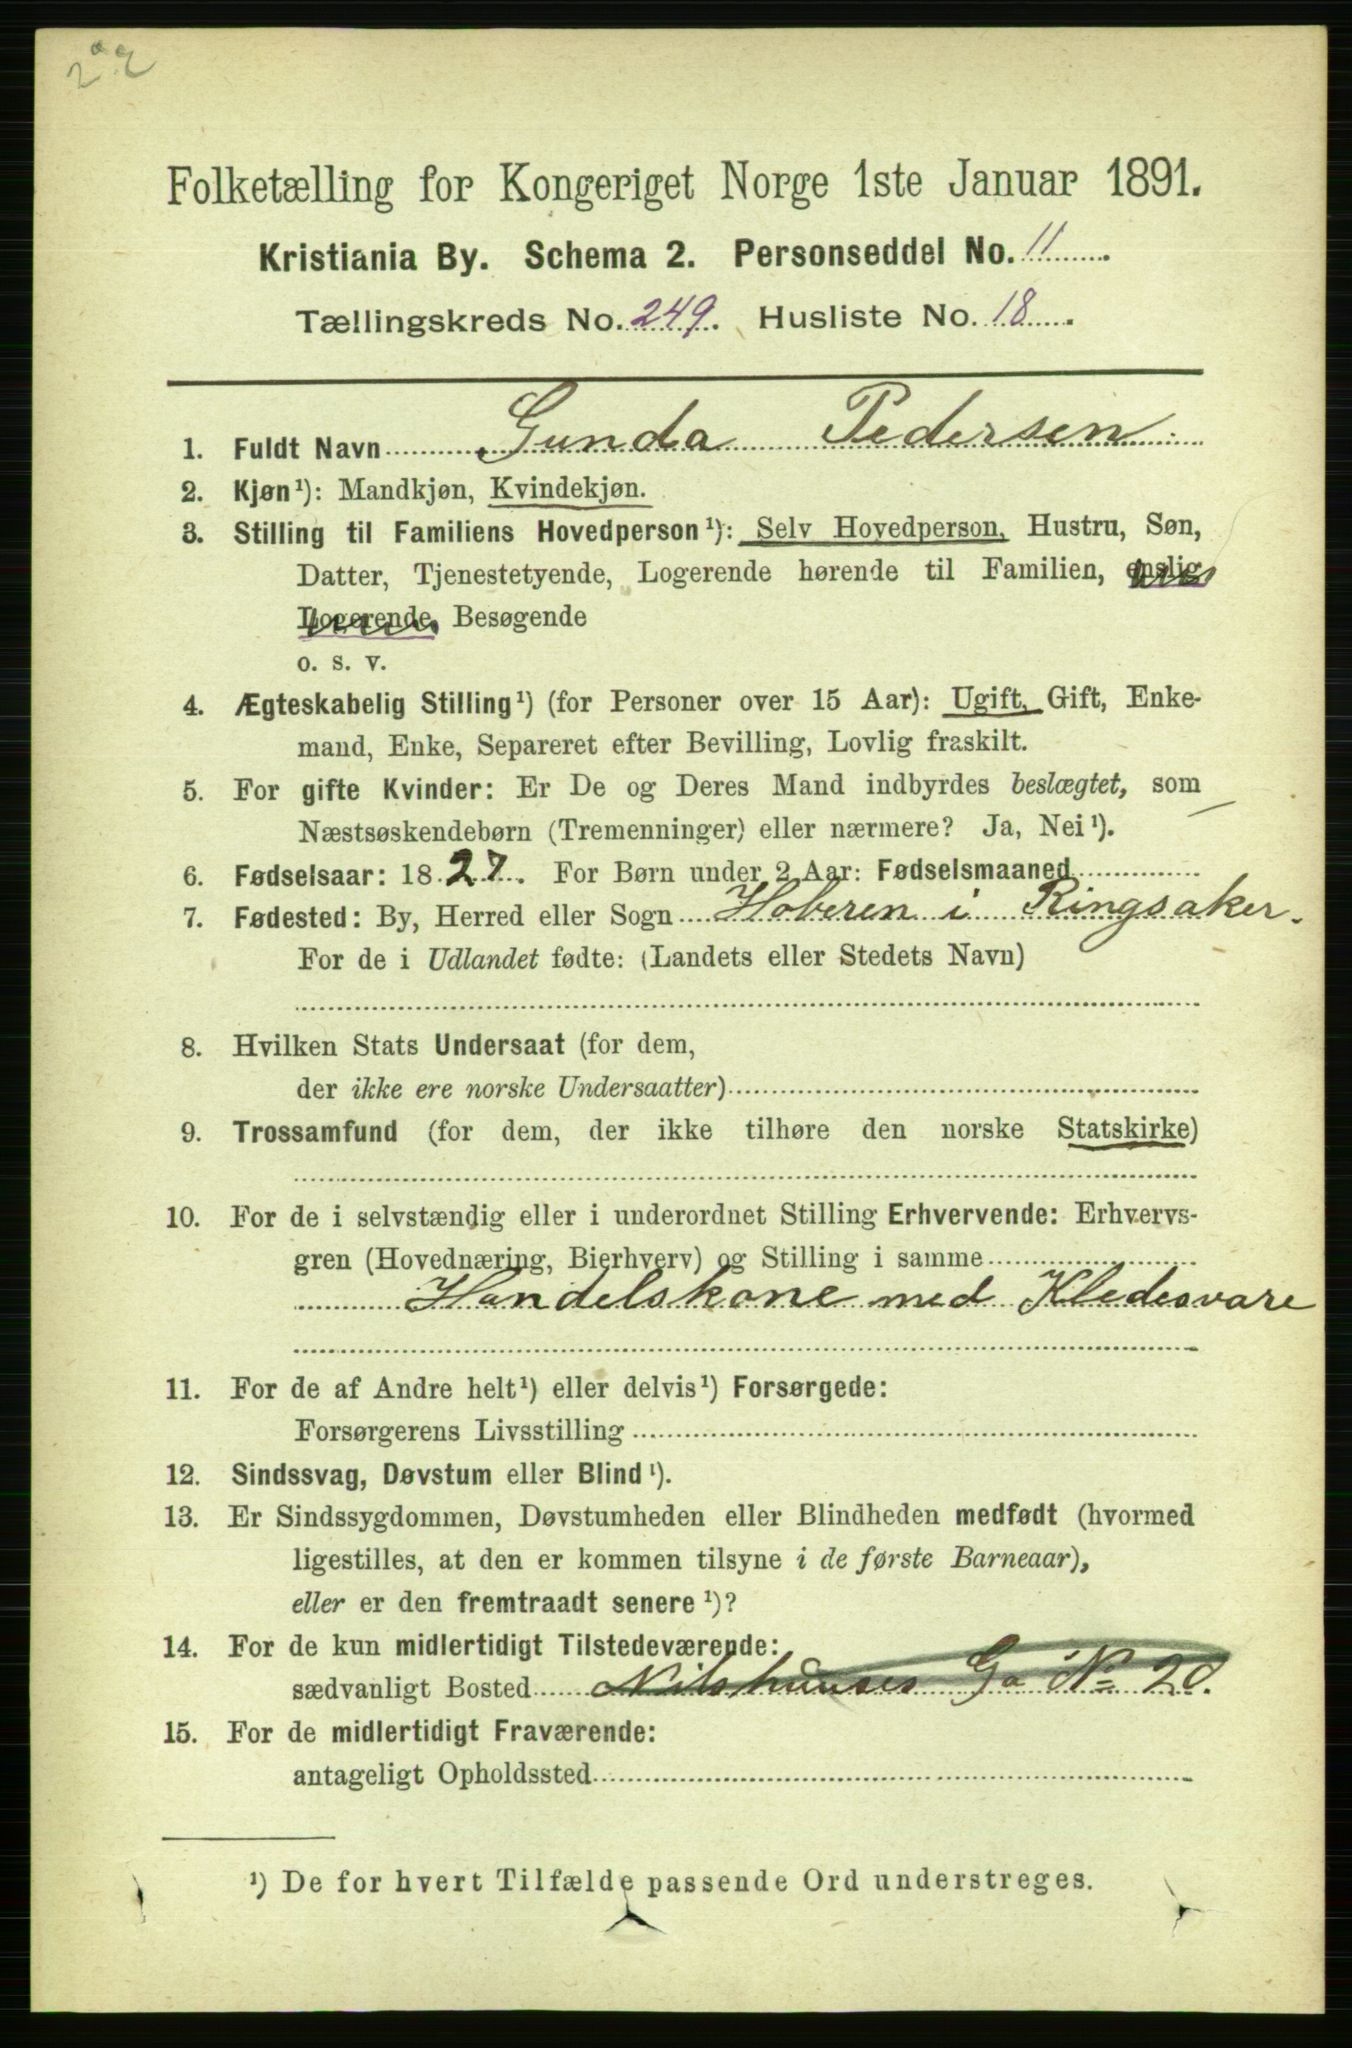 Folketælling for Kongeriget Norge 1ste Januar 1891.
Kristiania By. Schema 2. Personseddel No. 11
Tællingskreds No. 249. Husliste No. 18
1. Fuldt Navn Gunda Pedersen
2. Kjøn¹): Mandkjøn, Kvindekjøn.
3. Stilling til Familiens Hovedperson¹): Selv Hovedperson, Hustru, Søn,
Datter, Tjenestetyende, Logerende hørende til Familien, enslig
Logerende, Besøgende
o. s. v.
4. Ægteskabelig Stilling¹) (for Personer over 15 Aar): Ugift, Gift, Enke-
mand, Enke, Separeret efter Bevilling, Lovlig fraskilt.
5. For gifte Kvinder: Er De og Deres Mand indbyrdes beslægtet, som
Næstsøskendebørn (Tremenninger) eller nærmere? Ja, Nei¹).
6. Fødselsaar: 1827. For Børn under 2 Aar: Fødselsmaaned
7. Fødested: By, Herred eller Sogn Hoberen i Ringsaker.
For de i Udlandet fødte: (Landets eller Stedets Navn)
8. Hvilken Stats Undersaat (for dem,
der ikke ere norske Undersaatter)
9. Trossamfund (for dem, der ikke tilhøre den norske Statskirke)
10. For de i selvstændig eller i underordnet Stilling Erhvervende: Erhvervs-
gren (Hovednæring, Bierhverv) og Stilling i samme
Handelskone med Kledesvare
11. For de af Andre helt¹) eller delvis¹) Forsørgede:
Forsørgerens Livsstilling
12. Sindssvag, Døvstum eller Blind¹).
13. Er Sindssygdommen, Døvstumheden eller Blindheden medfødt (hvormed
ligestilles, at den er kommen tilsyne i de første Barneaar),
eller er den fremtraadt senere¹)?
14. For de kun midlertidigt Tilstedeværende:
sædvanligt Bosted Ga No 20.
15. For de midlertidigt Fraværende:
antageligt Opholdssted
¹) De for hvert Tilfælde passende Ord understreges.